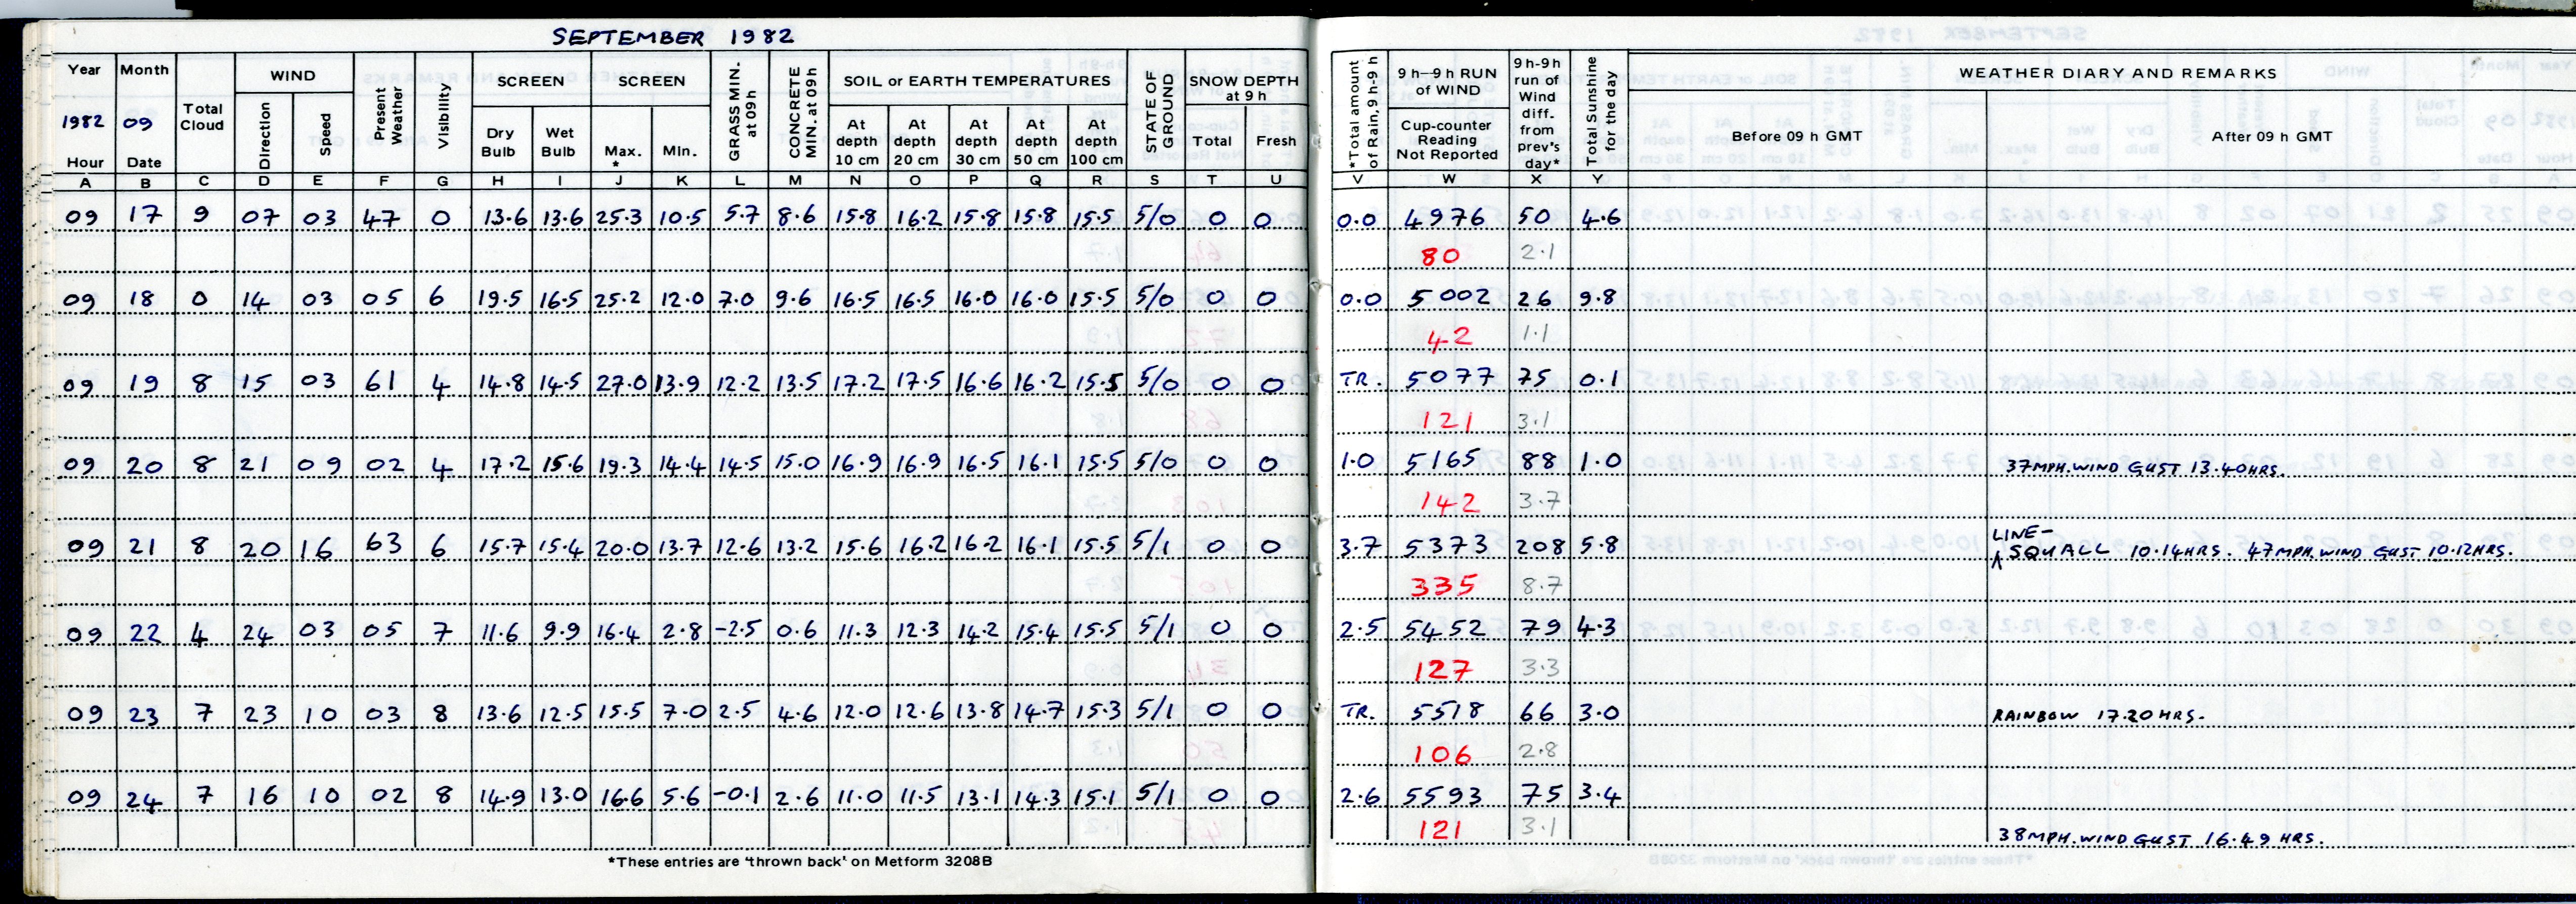 SEPTEMBER 1982
Year Month Total Cloud WIND Present Weather Visibility SCREEN SCREEN GRASS MIN. at 09h CONCRETE MIN. at 09h SOIL or EARTH TEMPERATURES STATE OF GROUND SNOW DEPTH at 9 h *Total amount of Rain, 9 h-9 h 9 h—9 h RUN of WIND 9h-9h run of Wind diff. from prev's day* Total Sunshine for the day WEATHER DIARY AND REMARKS
1982 09 Direction Speed Dry Bulb Wet Bulb Max. * Min. At depth 10 cm At depth 20 cm At depth 30 cm At depth 50 cm At depth 100 cm Total Fresh Cup-counter Reading Not Reported Before 09 h GMT After 09 h GMT
Hour Date
A B C D E F G H I J K L M N O P Q R S T U V W X Y
09 17 9 07 03 47 0 13.6 13.6 25.3 10.5 5.7 8.6 15.8 16.2 15.8 15.8 15.5 5/0 0 0 0.0 4976 50 4.6
80 2.1
09 18 0 14 03 05 6 19.5 16.5 25.2 12.0 7.0 9.6 16.5 16.5 16.0 16.0 15.5 5/0 0 0 0.0 5002 26 9.8
42 1.1
09 19 8 15 03 61 4 14.8 14.5 27.0 13.9 12.2 13.5 17.2 17.5 16.6 16.2 15.5 5/0 0 0 TR. 5077 75 0.1
121 3.1
09 20 8 21 09 02 4 17.2 15.6 19.3 14.4 14.5 15.0 16.9 16.9 16.5 16.1 15.5 5/0 0 0 1.0 5165 88 1.0 37MPH. WIND GUST 13.40HRS.
142 3.7
09 21 8 20 16 63 6 15.7 15.4 20.0 13.7 12.6 13.2 15.6 16.2 16.2 16.1 15.5 5/1 0 0 3.7 5373 208 5.8 LINE- SQUALL 10.14HRS. 47MPH. WIND GUST 10.12HRS.
335 8.7
09 22 4 24 03 05 7 11.6 9.9 16.4 2.8 -2.5 0.6 11.3 12.3 14.2 15.4 15.5 5/1 0 0 2.5 5452 79 4.3
127 3.3
09 23 7 23 10 03 8 13.6 12.5 15.5 7.0 2.5 4.6 12.0 12.6 13.8 14.7 15.3 5/1 0 0 TR. 5518 66 3.0 RAINBOW 17.20HRS.
106 2.8
09 24 7 16 10 02 8 14.9 13.0 16.6 5.6 -0.1 2.6 11.0 11.5 13.1 14.3 15.1 5/1 0 0 2.6 5593 75 3.4
121 3.1 38MPH. WIND GUST 16.49 HRS.
*These entries are 'thrown back' on Metform 3208B